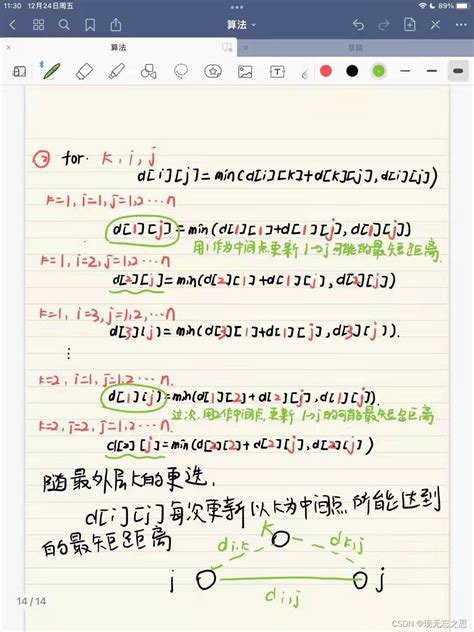 11:30 12月24日周五
89%
算法
算法
草稿
② for k,i,j
d[i][j]=min(d[i][k]+d[k][j],d[i][j])
k=1,i=1,j=1,2…n
d[1][j]=min(d[1][1]+d[1][j],d[1][j])
用1作为中间点更新1→j可能的最短距离
k=1,i=2,j=1,2,…n
d[2][j]=min(d[2][1]+d[1][j],d[2][j])
k=1,i=3,j=1,2,…n
d[3][j]=min(d[3][1]+d[1][j],d[3][j]).
⋮
k=2,i=1,j=1,2,…n.
d[1][j]=min(d[1][2]+d[2][j],d[1][j]).
这次用2作中间点更新1→j的可能最短距离
k=2,i=2,j=1,2…n.
d[2][j]=min(d[2][2]+d[2][j],d[2][j])
随最外层k的更迭,
d[i][j]每次更新以k为中间点所能达到
的最短距离
k
di,k
dk,j
i
j
di,j
14/14
CSDN @现无忘之思